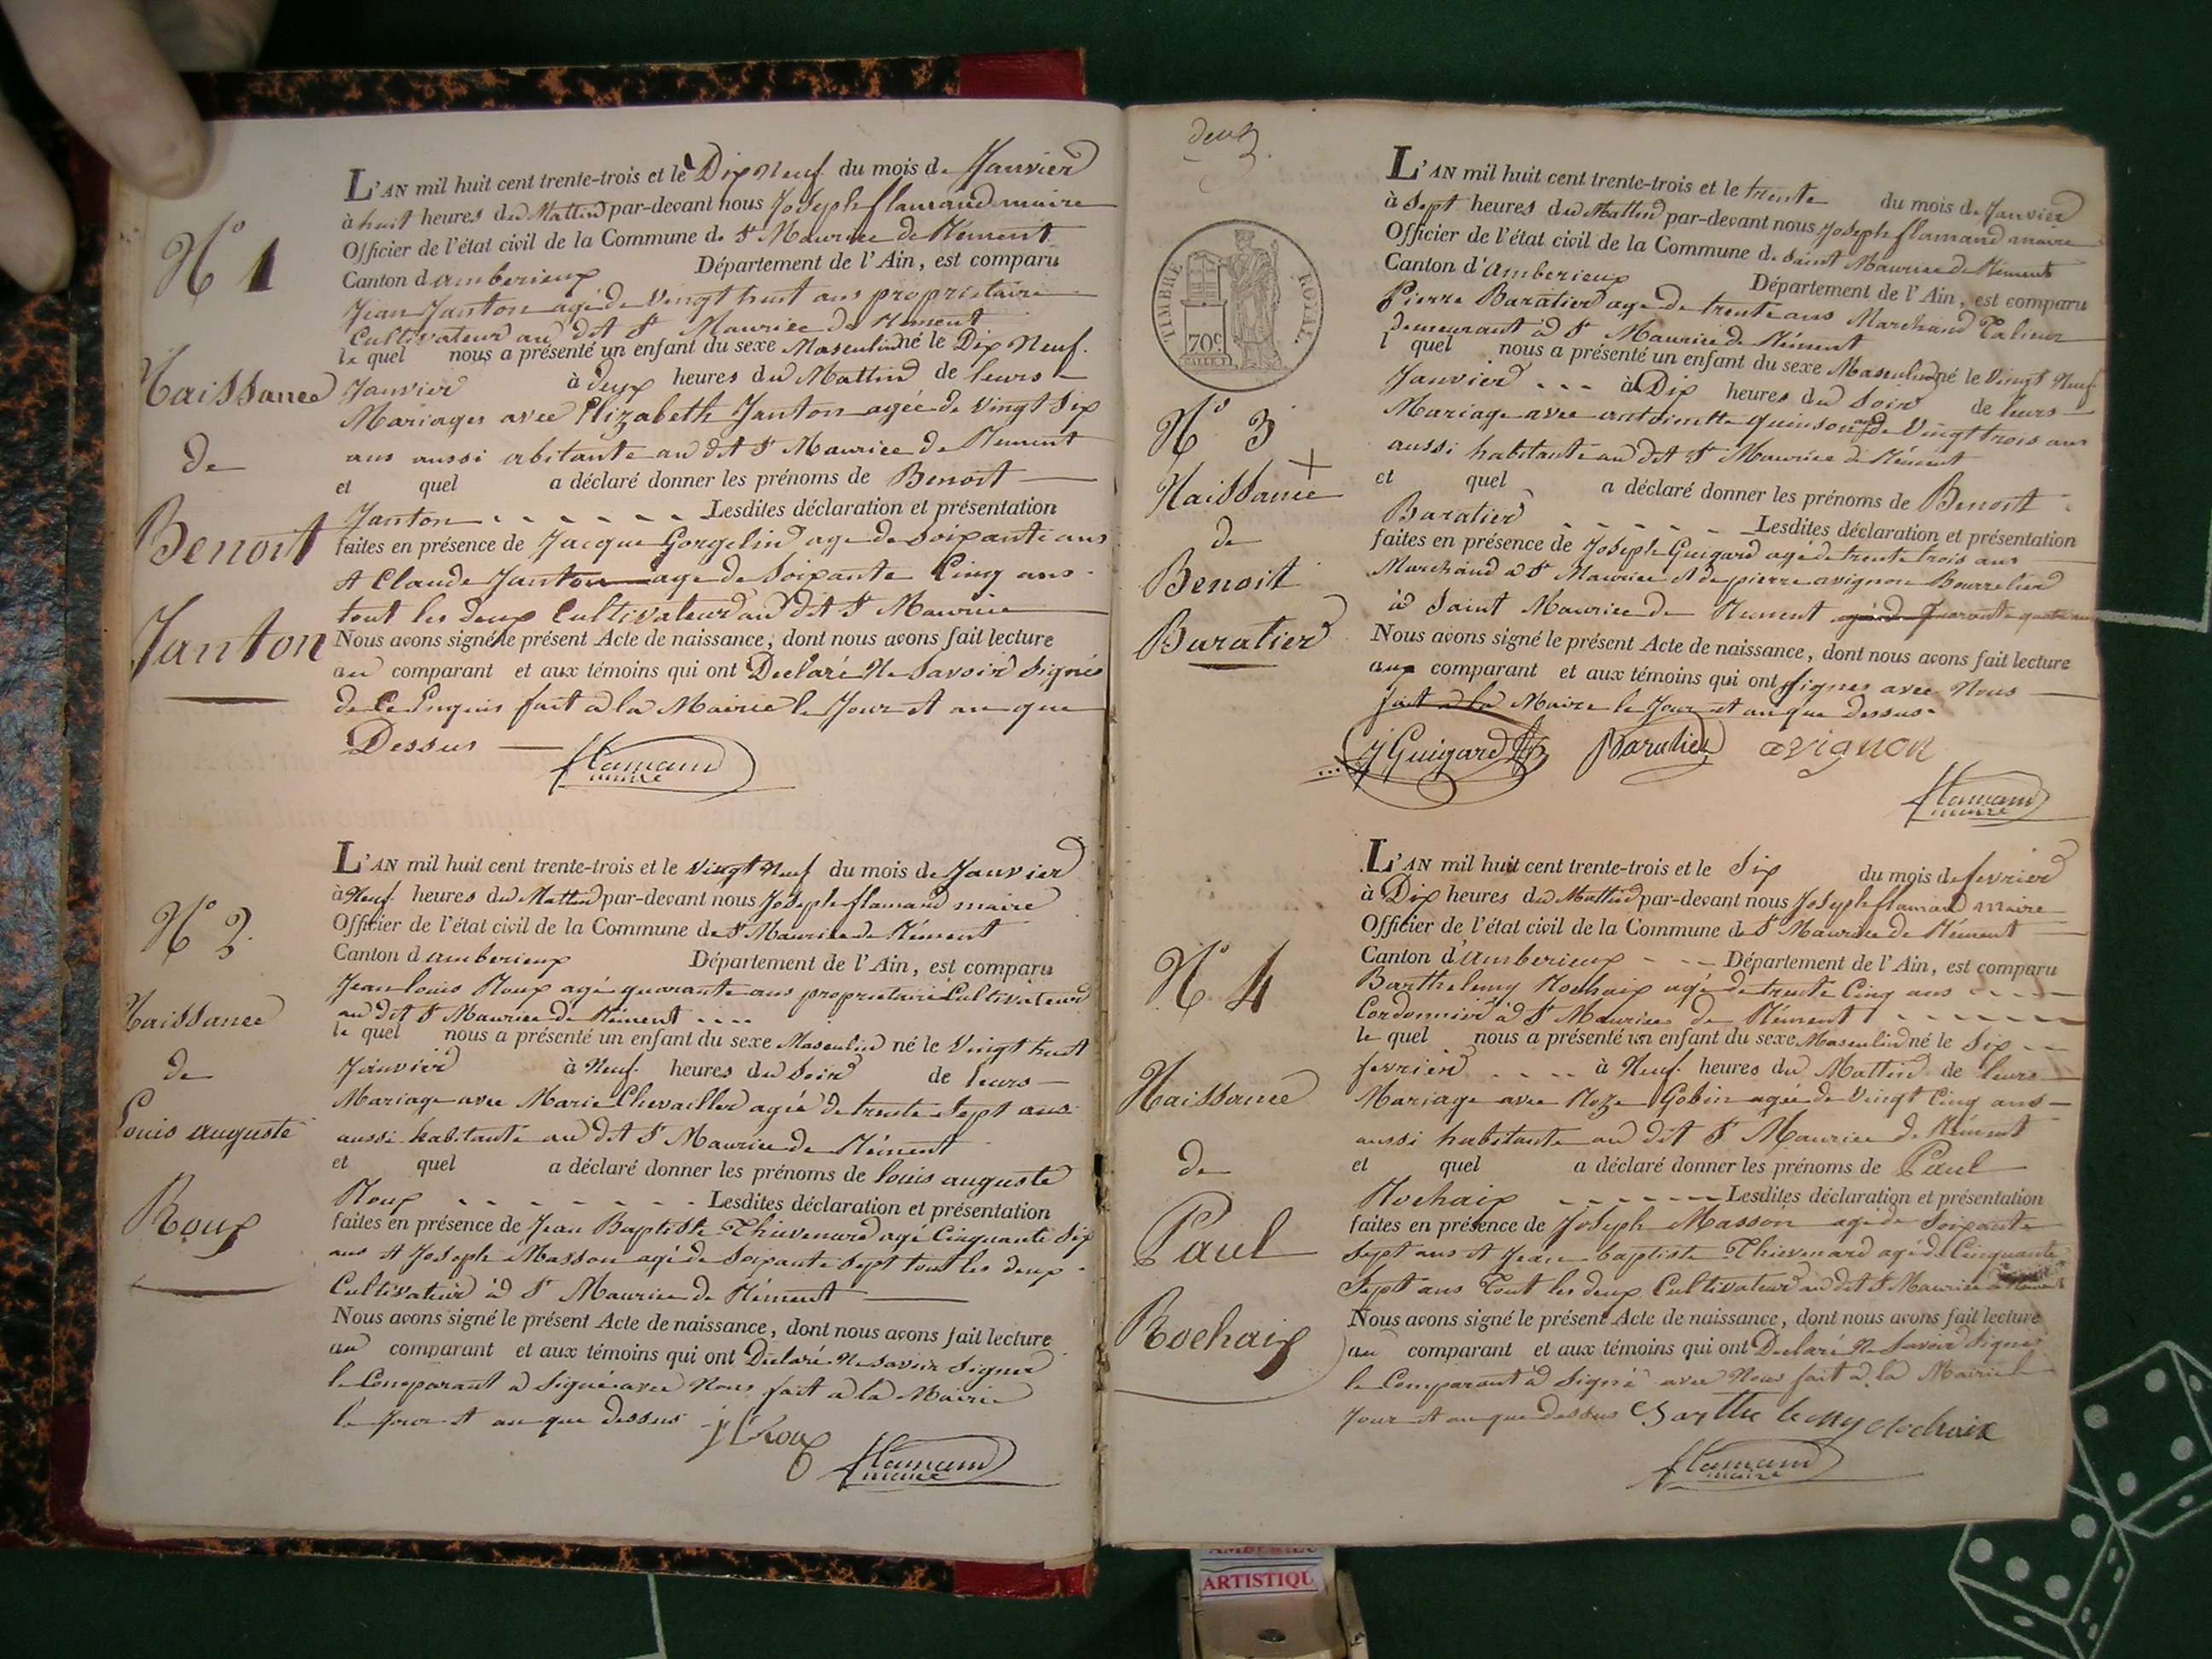 L'AN mil huit cent trente-trois et le Dix Neuf du mois de Janvier
à huit heures du Mattin par-devant nous Joseph flamand maire
Officier de l'état civil de la Commune de St Maurice de Rément
Canton d'amberieux Département de l'Ain, est comparu
Jean Janton agé de Vingt huit ans propriétaire
Cultivateur au dit St Maurice de Rement
le quel nous a présenté un enfant du sexe Masculin né le Dix Neuf.
Janvier à deux heures du Mattin de leurs
Mariages avec Elizabeth Janton agée de Vingt Six
ans aussi abitante au dit St Maurice de Rement
et quel a déclaré donner les prénoms de Benoit
Janton Lesdites déclaration et présentation
faites en présence de Jacque Gorgelin age de Soixante ans
et Claude Janton age de Soixante Cinq ans
tout les deux Cultivateur au dit St Maurice
Nous avons signé le présent Acte de naissance, dont nous avons fait lecture
au comparant et aux témoins qui ont Declaré Ne Savoir Signés
de Ce Enquis fait a la Mairie le Jour et an que
Dessus
flamand
maire
N° 1
Naissance
de
Benoit
Janton
L'AN mil huit cent trente-trois et le Vingt Neuf du mois de Janvier
à Neuf. heures du Mattin par-devant nous Joseph flamand maire
Officier de l'état civil de la Commune de St Maurice de Rément
Canton d'amberieux Département de l'Ain, est comparu
Jean louis Roux agé quarante ans propriétaire Cultivateur
au dit St Maurice de Rément ....
le quel nous a présenté un enfant du sexe Masculin né le Vingt huit
Janvier à Neuf. heures du Soir de leurs
Mariage avec Marie Chevallier agée de trente Sept ans
aussi habitante au dit St Maurice de Rément
et quel a déclaré donner les prénoms de louis auguste
Roux Lesdites déclaration et présentation
faites en présence de Jean Baptiste Thievenard age Cinquante Six
ans et Joseph Masson agé de Soixante Sept tout les deux
Cultivateur à St Maurice de Rément
Nous avons signé le présent Acte de naissance, dont nous avons fait lecture
au comparant et aux témoins qui ont Declaré Ne Savoir Signer
le Comparant a Signé avec Nous fait a la Mairie
le Jour et an que dessus
j l Roux
flamand
maire
N° 2.
Naissance
de
Louis auguste
Roux
deux.
TIMBRE ROYAL.
70c
N° 3
Naissance
de
Benoit
Baratier
L'AN mil huit cent trente-trois et le trente du mois de Janvier
à Sept heures du Mattin par-devant nous Joseph flamand maire
Officier de l'état civil de la Commune de Saint Maurice de Rément
Canton d'amberieux Département de l'Ain, est comparu
Pierre Baratier age de trente ans Marchand Talieur
demeurant à St Maurice de Rément
l quel nous a présenté un enfant du sexe Masculin né le Vingt Neuf
Janvier ... à Dix heures du Soir de leurs
Mariage avec antoinette quinson agé de Vingt trois ans
aussi habitante au dit St Maurice de Rément
et quel a déclaré donner les prénoms de Benoit
Baratier Lesdites déclaration et présentation
faites en présence de Joseph Guigard agé de trente trois ans
Marchand a St Maurice et de pierre avignon Bourrelier
à Saint Maurice de Rement agé de quarante quatre ans
Nous avons signé le présent Acte de naissance, dont nous avons fait lecture
aux comparant et aux témoins qui ont Signes avec Nous
fait a la Maire le Jour et an que Dessus.
J Guigard Baratier avignon
flamand
maire
N° 4
Naissance
de
Paul
Rochaix
L'AN mil huit cent trente-trois et le Six du mois de fevrier
à Dix heures du Mattin par-devant nous Joseph flamand maire
Officier de l'état civil de la Commune de St Maurice de Rément
Canton d'amberieux Département de l'Ain, est comparu
Barthelemy Rochaix agé de trente Cinq ans
Cordonnier à St Maurice de Rément
le quel nous a présenté un enfant du sexe Masculin né le Six
fevrier .... à Neuf. heures du Mattin de leurs
Mariage avec Roze Gobin agée de Vingt Cinq ans
aussi habitante au dit St Maurice de Rément
et quel a déclaré donner les prénoms de Paul
Rochaix Lesdites déclaration et présentation
faites en présence de Joseph Masson agé de Soixante
Sept ans et Jean baptiste Thievenard agé de Cinquante
Sept ans Tout les deux Cultivateur au dit St Maurice
Nous avons signé le présent Acte de naissance, dont nous avons fait lecture
au comparant et aux témoins qui ont Declaré Ne Savoir Signé
le Comparant à Signé avec Nous fait a la Mairie le
Jour et an que dessus Barthelemy Rochaix
flamand
maire
ARTISTIQU